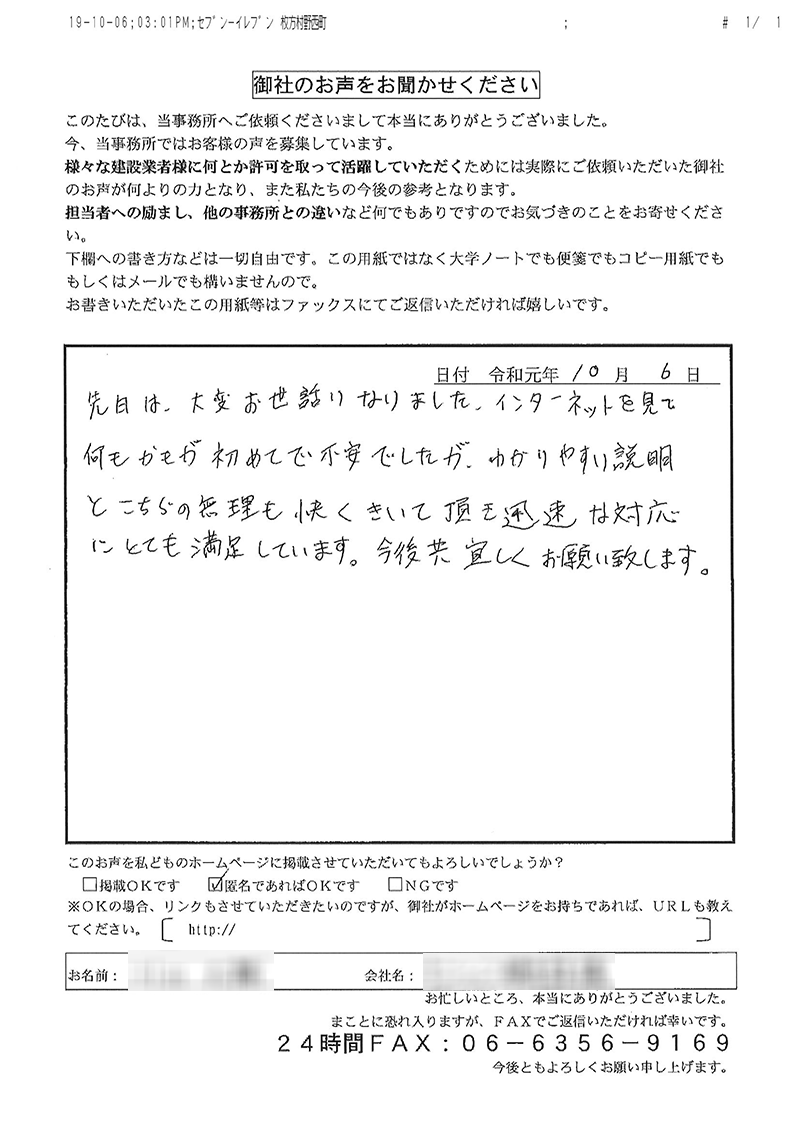 19-10-06;03:01PM;セブン-イレブン 枚方村野西町 ; # 1/ 1
御社のお声をお聞かせください
このたびは、当事務所へご依頼くださいまして本当にありがとうございました。
今、当事務所ではお客様の声を募集しています。
様々な建設業者様に何とか許可を取って活躍していただくためには実際にご依頼いただいた御社
のお声が何よりの力となり、また私たちの今後の参考となります。
担当者への励まし、他の事務所との違いなど何でもありですのでお気づきのことをお寄せくださ
い。
下欄への書き方などは一切自由です。この用紙ではなく大学ノートでも便箋でもコピー用紙でも
もしくはメールでも構いませんので。
お書きいただいたこの用紙等はファックスにてご返信いただければ嬉しいです。
日付 令和元年 10 月 6 日
先日は、大変お世話になりました。インターネットを見て
何もかもが初めてで不安でしたが、わかりやすい説明
とこちらの無理も快くきいて頂き迅速な対応
にとても満足しています。今後共宜しくお願い致します。
このお声を私どものホームページに掲載させていただいてもよろしいでしょうか？
□掲載ＯＫです ☑匿名であればＯＫです □ＮＧです
※ＯＫの場合、リンクもさせていただきたいのですが、御社がホームページをお持ちであれば、ＵＲＬも教え
てください。〔 http:// 〕
お名前： 会社名：
お忙しいところ、本当にありがとうございました。
まことに恐れ入りますが、ＦＡＸでご返信いただければ幸いです。
２４時間ＦＡＸ：０６－６３５６－９１６９
今後ともよろしくお願い申し上げます。